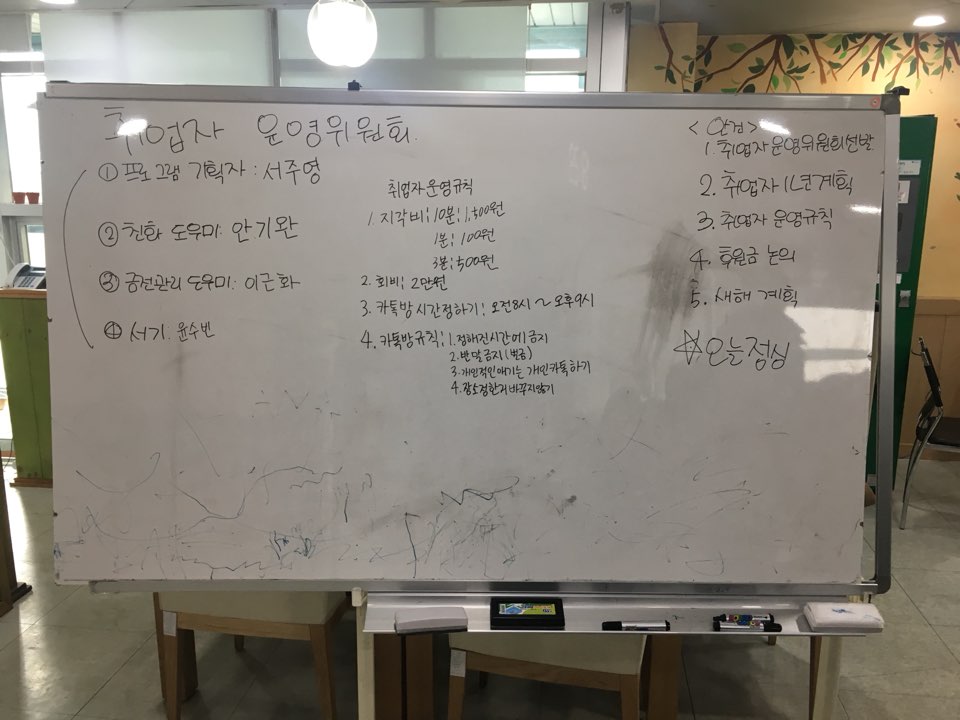 취업자 운영위원회
① 프로그램 기획자 : 서주영
② 친화 도우미 : 안기완
③ 금전관리 도우미 : 이근화
④ 서기 윤수빈
취업자 운영규칙
1. 지각비 : 10분 : 1,500원
1분 : 100원
3분 : 500원
2. 회비 : 2만원
3. 카톡방 시간정하기 : 오전8시 ~ 오후9시
4. 카톡방규칙 : 1. 정해진시간에 금지
2. 반말금지(벌금)
3. 개인적인얘기는 개인카톡하기
4. 장소정한거 바꾸지않기
<안건>
1. 취업자 운영위원회선발
2. 취업자 1년계획
3. 취업자 운영규칙
4. 후원금 논의
5. 새해 계획
☆오늘점심